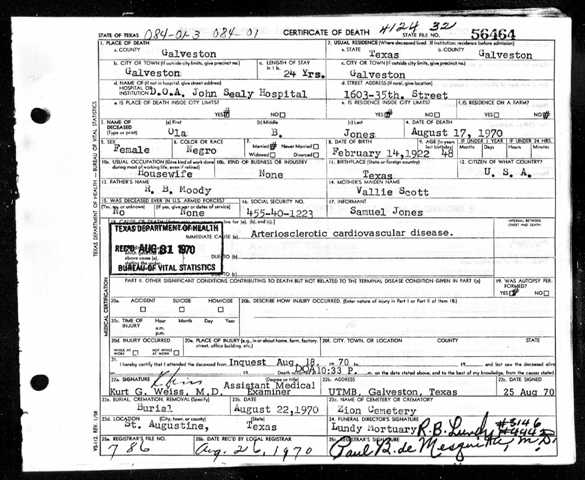 084-01-3 084-01 4124 32
STATE OF TEXAS CERTIFICATE OF DEATH STATE FILE NO. 56464
1. PLACE OF DEATH 2. USUAL RESIDENCE (Where deceased lived. If institution: residence before admission)
a. COUNTY Galveston a. STATE Texas b. COUNTY Galveston
b. CITY OR TOWN (If outside city limits, give precinct no.) c. LENGTH OF STAY c. CITY OR TOWN (If outside city limits, give precinct no.)
Galveston 24 Yrs. Galveston
d. NAME OF (If not in hospital, give street address) d. STREET ADDRESS (If rural, give location)
HOSPITAL OR INSTITUTION D.O.A. John Sealy Hospital 1603-35th. Street
e. IS PLACE OF DEATH INSIDE CITY LIMITS? e. IS RESIDENCE INSIDE CITY LIMITS? f. IS RESIDENCE ON A FARM?
YES NO YES NO YES NO
3. NAME OF DECEASED (a) First (b) Middle (c) Last 4. DATE OF DEATH
Ula B. Jones August 17, 1970
5. SEX 6. COLOR OR RACE 7. Married Never Married 8. DATE OF BIRTH 9. AGE IF UNDER 1 YEAR IF UNDER 24 HRS.
Female Negro Widowed Divorced February 14, 1922 48
10a. USUAL OCCUPATION (Give kind of work done 10b. KIND OF BUSINESS OR INDUSTRY 11. BIRTHPLACE (State or foreign country) 12. CITIZEN OF WHAT COUNTRY?
during most of working life, even if retired)
Housewife None Texas U. S. A.
13. FATHER'S NAME 14. MOTHER'S MAIDEN NAME
R. B. Moody Vallie Scott
15. WAS DECEASED EVER IN U.S. ARMED FORCES? 16. SOCIAL SECURITY NO. 17. INFORMANT
No None 455-40-1223 Samuel Jones
18. CAUSE OF DEATH
TEXAS DEPARTMENT OF HEALTH
IMMEDIATE CAUSE (a) Arteriosclerotic cardiovascular disease.
REC'D AUG 31 1970
BUREAU OF VITAL STATISTICS
DUE TO
PART II. OTHER SIGNIFICANT CONDITIONS CONTRIBUTING TO DEATH BUT NOT RELATED TO THE TERMINAL DISEASE CONDITION GIVEN IN PART I(a) 19. WAS AUTOPSY PERFORMED?
YES NO
20a. ACCIDENT SUICIDE HOMICIDE 20b. DESCRIBE HOW INJURY OCCURRED. (Enter nature of injury in Part I or Part II of item 18.)
20c. TIME OF INJURY Hour Month Day Year
a.m.
p.m.
20d. INJURY OCCURRED 20e. PLACE OF INJURY (e.g., in or about home, farm, factory, 20f. CITY, TOWN, OR LOCATION COUNTY STATE
WHILE AT WORK NOT WHILE AT WORK street, office building, etc.)
21. I hereby certify that I attended the deceased from Inquest Aug. 18, 1970
DOA 10:33 P.
22a. SIGNATURE (Degree or title) 22b. ADDRESS 22c. DATE SIGNED
Assistant Medical
Kurt G. Weiss, M.D. Examiner UTMB, Galveston, Texas 25 Aug 70
23a. BURIAL, CREMATION, REMOVAL (Specify) 23b. DATE 23c. NAME OF CEMETERY OR CREMATORY
Burial August 22,1970 Zion Cemetery
23d. LOCATION (City, town, or county) (State) 24. FUNERAL DIRECTOR'S SIGNATURE
St. Augustine, Texas Lundy Mortuary R.B. Lundy #3146
25a. REGISTRAR'S FILE NO. 25b. DATE REC'D BY LOCAL REGISTRAR 25c. REGISTRAR'S SIGNATURE
786 Aug. 26, 1970 Paul B. de Mesquita, M.D.
MEDICAL CERTIFICATION
TEXAS DEPARTMENT OF HEALTH — BUREAU OF VITAL STATISTICS